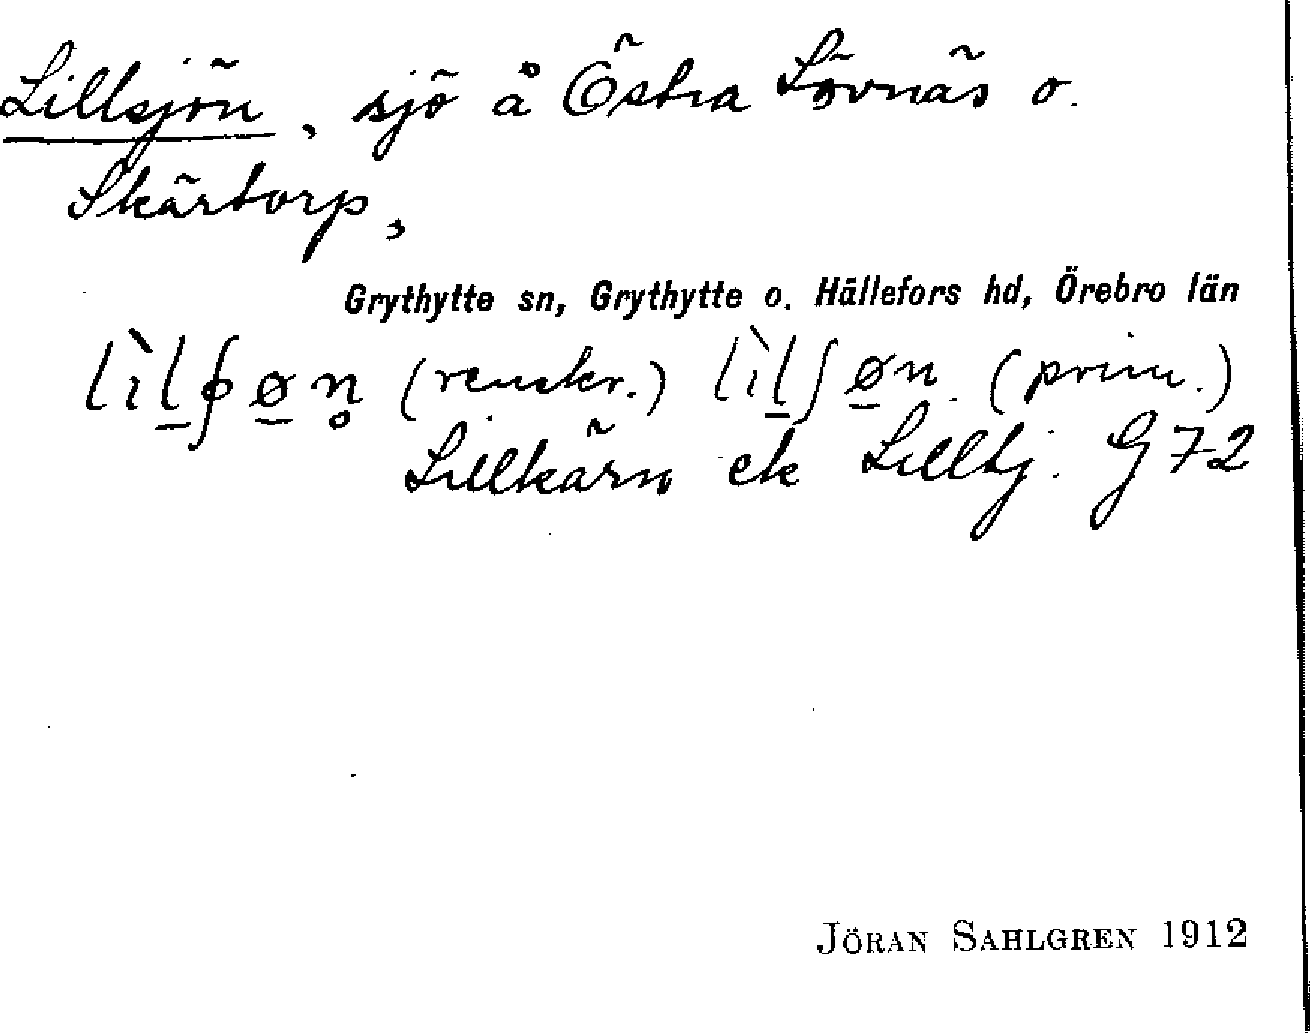 Lillsjön, sjö å Östra Lövnäs o.
Skärtorp,
Grythytte sn, Grythytte o. Hällefors hd, Örebro län
lìl̲ʃø̲n̥ (renskr.) lìl̲ʃø̲n. (prim.)
Lillkärn ek Lilltj. G 72
JÖRAN SAHLGREN 1912